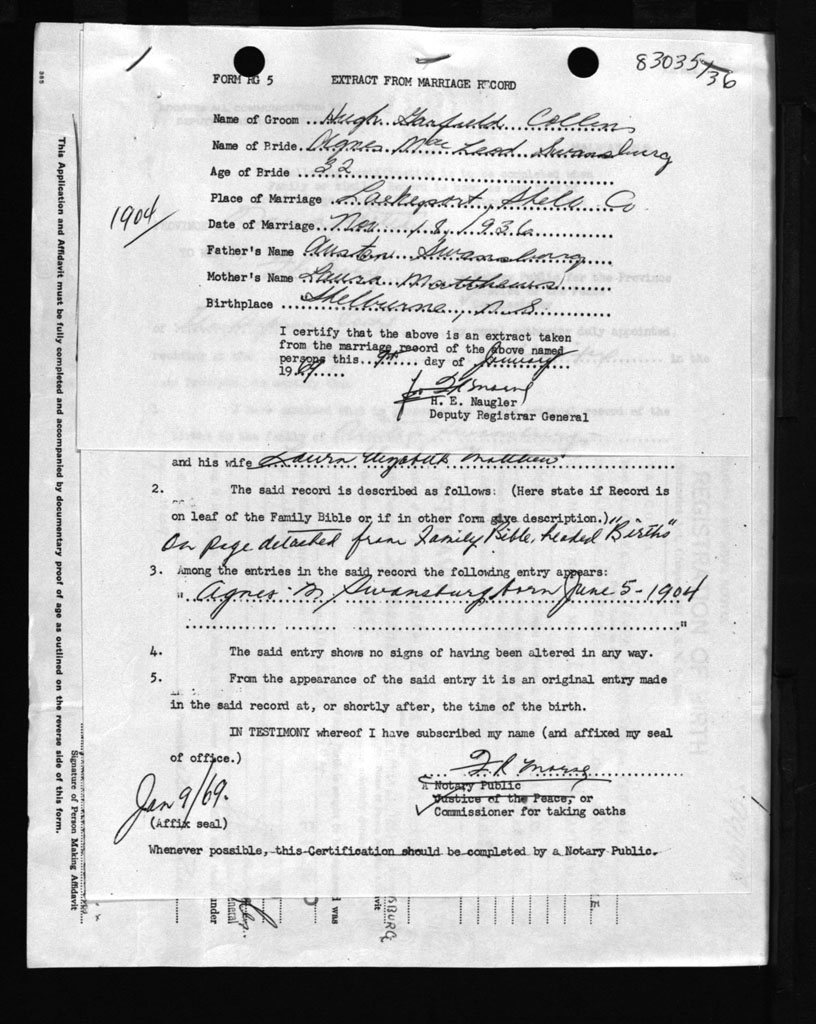 83035/36
FORM RG 5 EXTRACT FROM MARRIAGE RECORD
Name of Groom ... Hugh Garfield Collins
Name of Bride. Agnes MacLeod Swansburg
Age of Bride .. 32
Place of Marriage . Lockeport, Shelb. Co
1904
Date of Marriage. Nov. 18, 1936
Father's Name Austen Swansburg
Mother's Name Laura Matthews
Birthplace ... Shelburne, N.S.
I certify that the above is an extract taken
from the marriage record of the above named
persons this.. 9th.. day of January
19 69
H. E. Naugler
Deputy Registrar General
and his wife Laura Elizabeth Matthew
2. The said record is described as follows: (Here state if Record is
on leaf of the Family Bible or if in other form give description.)
On page detached from Family Bible, headed "Births"
3. Among the entries in the said record the following entry appears:
" Agnes M. Swansburg, born June 5 - 1904
"
4. The said entry shows no signs of having been altered in any way.
5. From the appearance of the said entry it is an original entry made
in the said record at, or shortly after, the time of the birth.
IN TESTIMONY whereof I have subscribed my name (and affixed my seal
of office.)
Jan 9/69.
(Affix seal)
A Notary Public
Justice of the Peace, or
Commissioner for taking oaths
Whenever possible, this Certification should be completed by a Notary Public.
This Application and Affidavit must be fully completed and accompanied by documentary proof of age as outlined on the reverse side of this form.
Signature of Person Making Affidavit